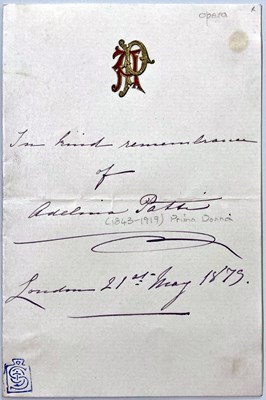 opera
AP
In kind remembrance
of
Adelina Patti
(1843-1919) Prima Donna
London 21st May 1879.